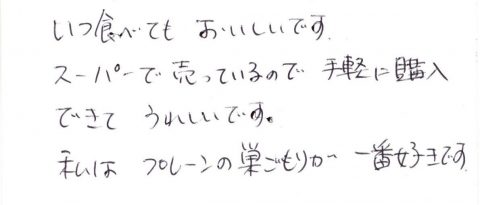 いつ食べても おいしいです.
スーパーで売っているので 手軽に購入
できて うれしいです。
私は プレーンの巣ごもりが 一番好きです